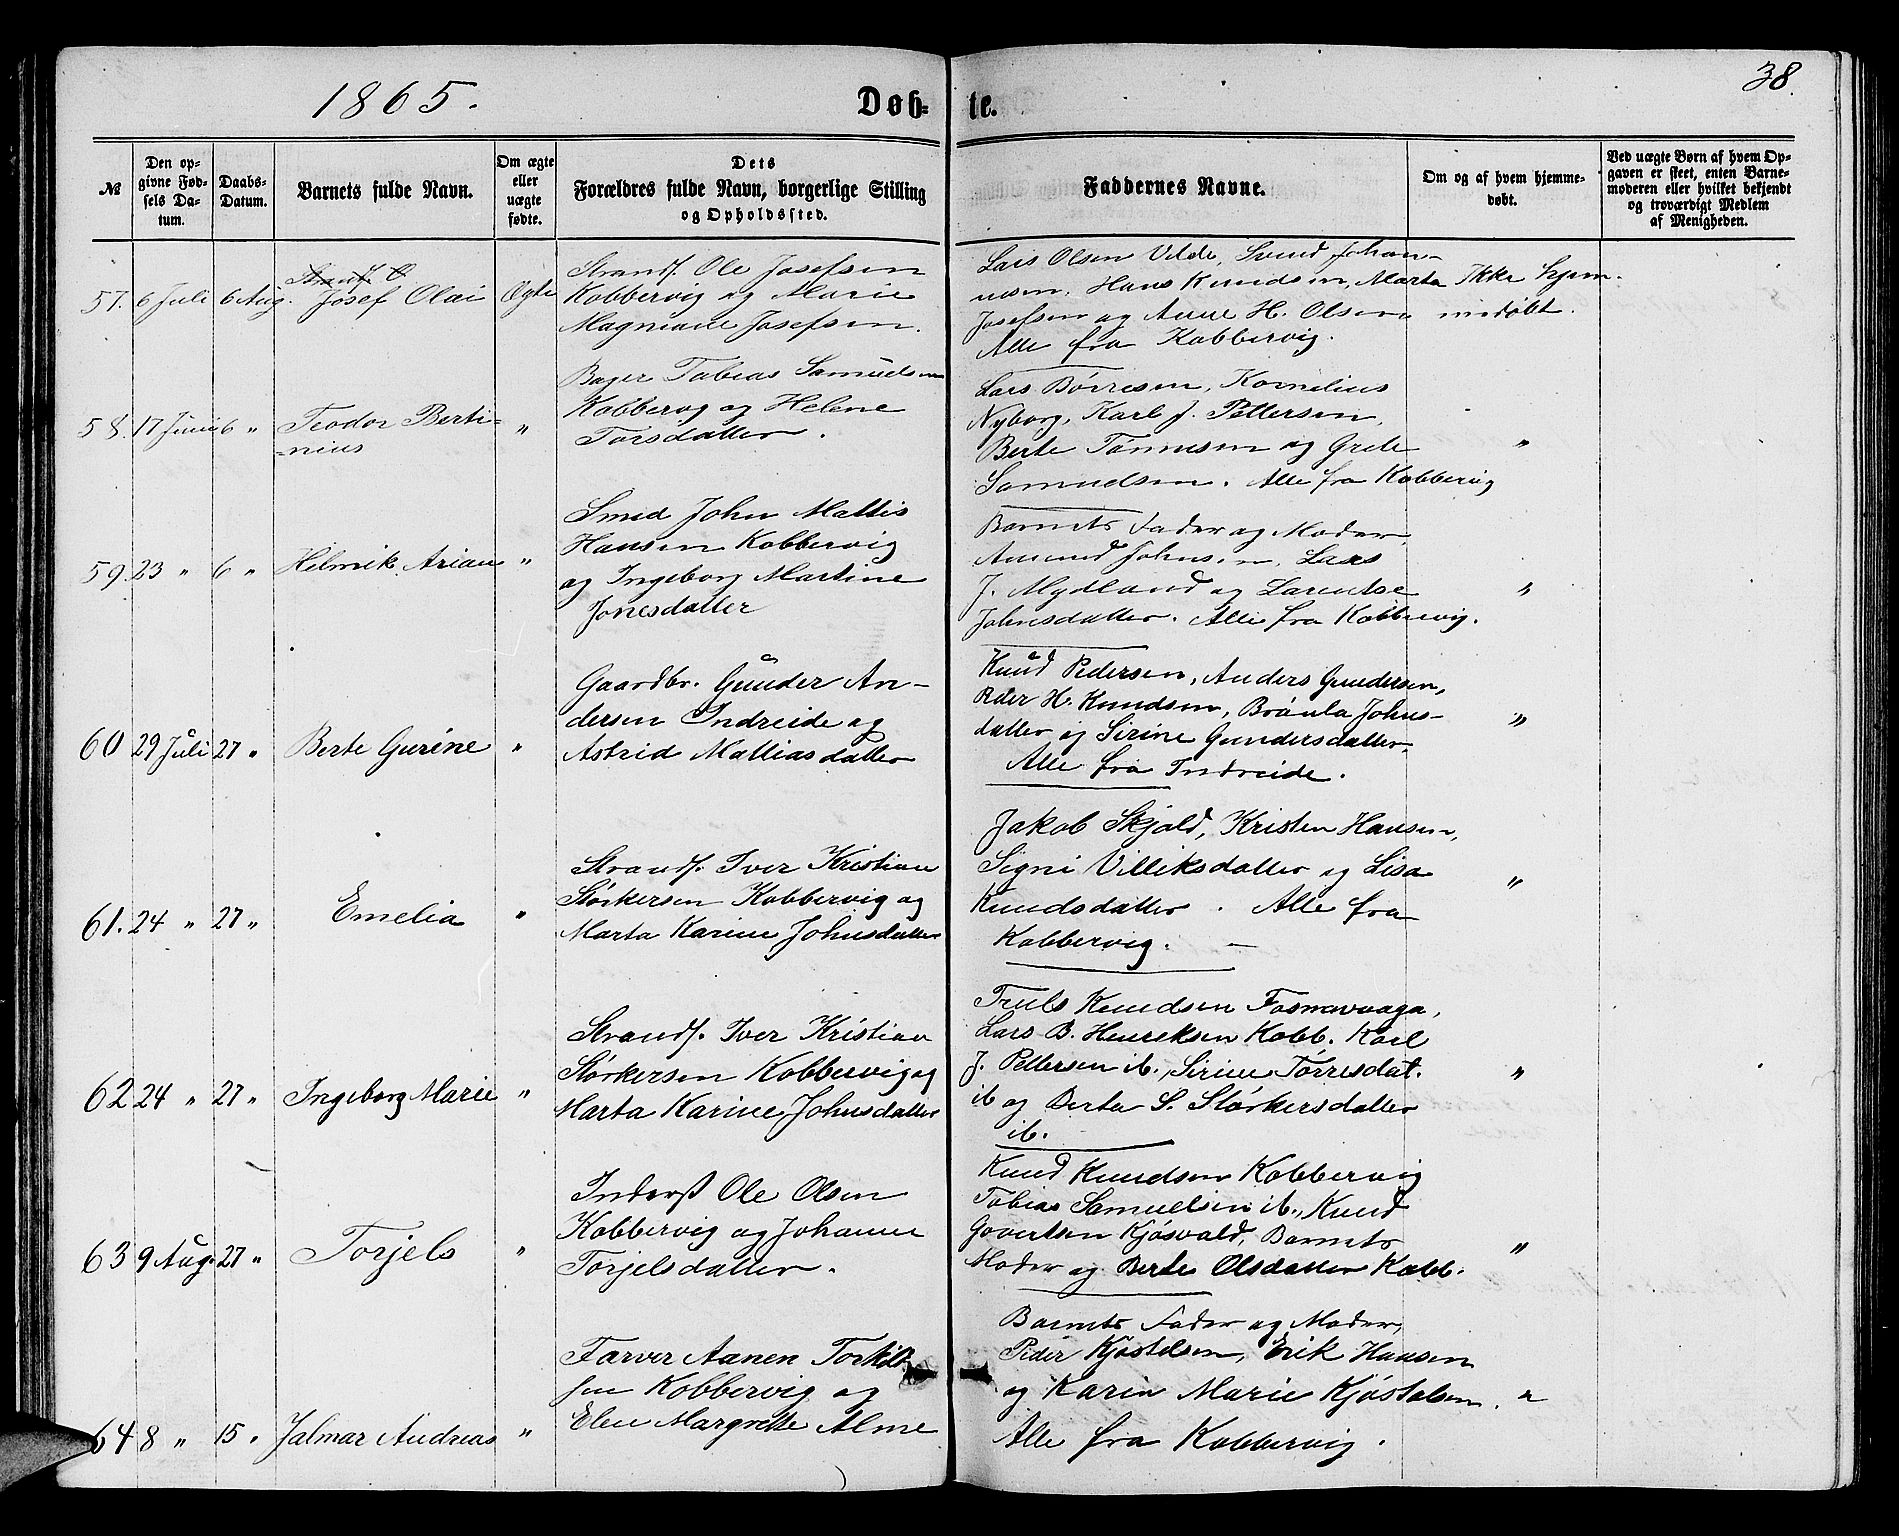 1865.
Døb-
te.
38.
№
Den op-
givne Fød-
sels Da-
tum.
Daabs-
Datum.
Barnets fulde Navn.
Om ægte
eller
uægte
fødte.
Dets
Forældres fulde Navn, borgerlige Stilling
og Opholdssted.
Faddernes Navne.
Om og af hvem hjemme-
døbt.
Ved uægte Børn af hvem Op-
gaven er skeet, enten Barne-
moderen eller hvilket bekjendt
og troværdigt Medlem
af Menigheden.
57. 6 Juli 6 Aug.
Josef Olai
Ægte
Strands. Ole Josefsen
Kobbervig og Marie
Magniane Josefsen.
Lars Olsen Velde, Svend Johan-
nesen, Hans Knudsen, Marta
Josefsen og Anne H. Olsen
Alle fra Kobbervig.
Ikke hjem-
medøbt.
58. 17 Juni 6 "
Teodor Berti-
=nius
"
Bager Tobias Samuelsen
Kobbervg og Helene
Torsdatter.
Lars Børresen, Kornelius
Nyborg, Karl J. Pettersen,
Berte Tønnesen og Grete
Samuelsen. Alle fra Kobbervig
"
59. 23 " 6 "
Helmik Arian
"
Smed John Mattis
Hansen Kobbervig
og Ingeborg Martine
Jonesdatter
Barnets Fader og Moder,
Amund Johnsen, Lars
J. Mydland og Larentse
Johnsdatter. Alle fra Kobbervig.
"
60 29 Juli 27 "
Berte Gurine
"
Gaardbr. Gunder An-
dersen Indreide og
Astrid Mattiasdatter
Knud Pedersen, Anders Gundersen,
Peder H. Knudsen, Brønla Johns-
datter og Sirine Gundersdatter.
Alle fra Indreide.
"
61. 24 " 27 "
Emelia
"
Strands. Iver Kristian
Størkersen Kobbervig og
Marta Karine Johnsdatter
Jakob Skjold, Kristen Hansen,
Signi Villiksdatter og Lisa
Knudsdatter. Alle fra
Kobbervig. —
"
62 24 " 27 "
Ingeborg Marie
"
Strands. Iver Kristian
Størkersen Kobbervig og
Marta Karine Johnsdatter
Truls Knudsen Fosnavaaga,
Lars B. Henreksen Kobb. Karl
J. Pettersen ib., Sirine Tørresdat.
ib og Berta S. Størkersdatter
ib.
"
63 9 Aug. 27 "
Torjels
"
Inderst Ole Olsen
Kobbervig og Johanne
Torjelsdatter.
Knud Knudsen Kobbervig
Tobias Samuelsen ib., Knud
Govertsen Kjøsvald, Barnets
Moder og Berte Olsdatter Kobb.
"
64 8 " 15 "
Jalmar Andreas
"
Farver Aanen Torkild-
sen Kobbervig og
Elen Margrette Alme
Barnets Fader og Moder,
Peder Kjøstelsen, Erik Hansen
og Karin Marie Kjøstelsen.
Alle fra Kobbervig.
"